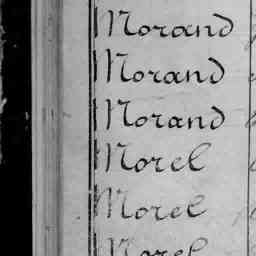 Morand
Morand
Morand
Morel
Morel
Morel